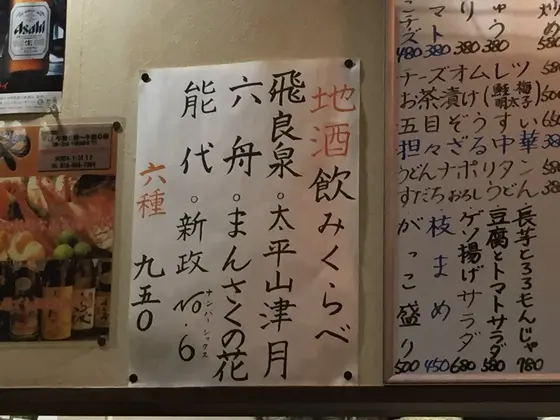 Asahi
生
地酒飲みくらべ
飛良泉。太平山津月
六舟。まんさくの花
能代。新政No.6
ナンバーシックス
六種
九五〇
480 380 380 380 580
チーズオムレツ 580
お茶漬け(鮭梅明太子) 500
五目ぞうすい 650
担々ざる中華
うどんナポリタン 580
すだちおろしうどん
がっこ盛り 500
枝まめ 450
ゲソ揚げサラダ 680
豆腐とトマトサラダ 580
長芋とろろもんじゃ 780